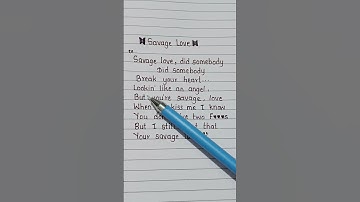 Savage Love
"
Savage love, did somebody
Did somebody
Break your heart...
Lookin' like an angel,
But you're savage love
When kiss me I know
You don' two f***s
But I sti that
Your savage